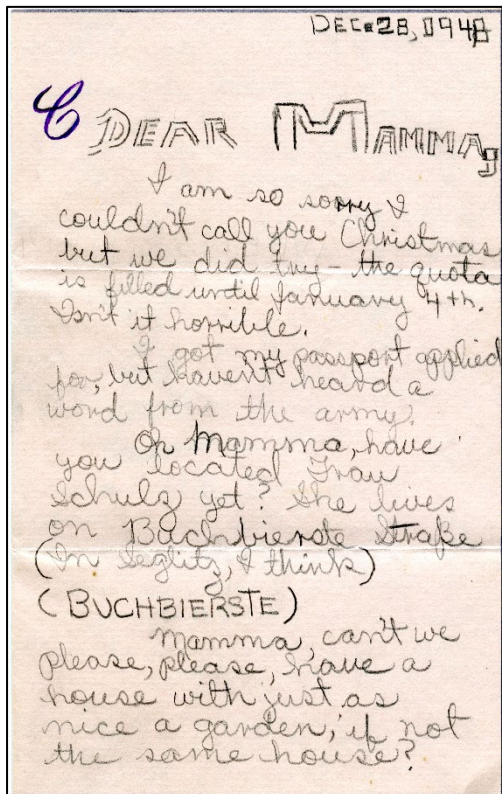 DEC. 28, 1948
C DEAR MAMMA,
I am so sorry I
couldn't call you Christmas
but we did try - the quota
is filled until January 4th.
Isn't it horrible.
I got my passport applied
for, but haven't heard a
word from the army.
Oh Mamma, have
you located Frau
Schulz yet? She lives
on Buchbierste Straße
(In Seglitz, I think)
(BUCHBIERSTE)
Mamma, can't we
please, please, have a
house with just as
nice a garden, if not
the same house?